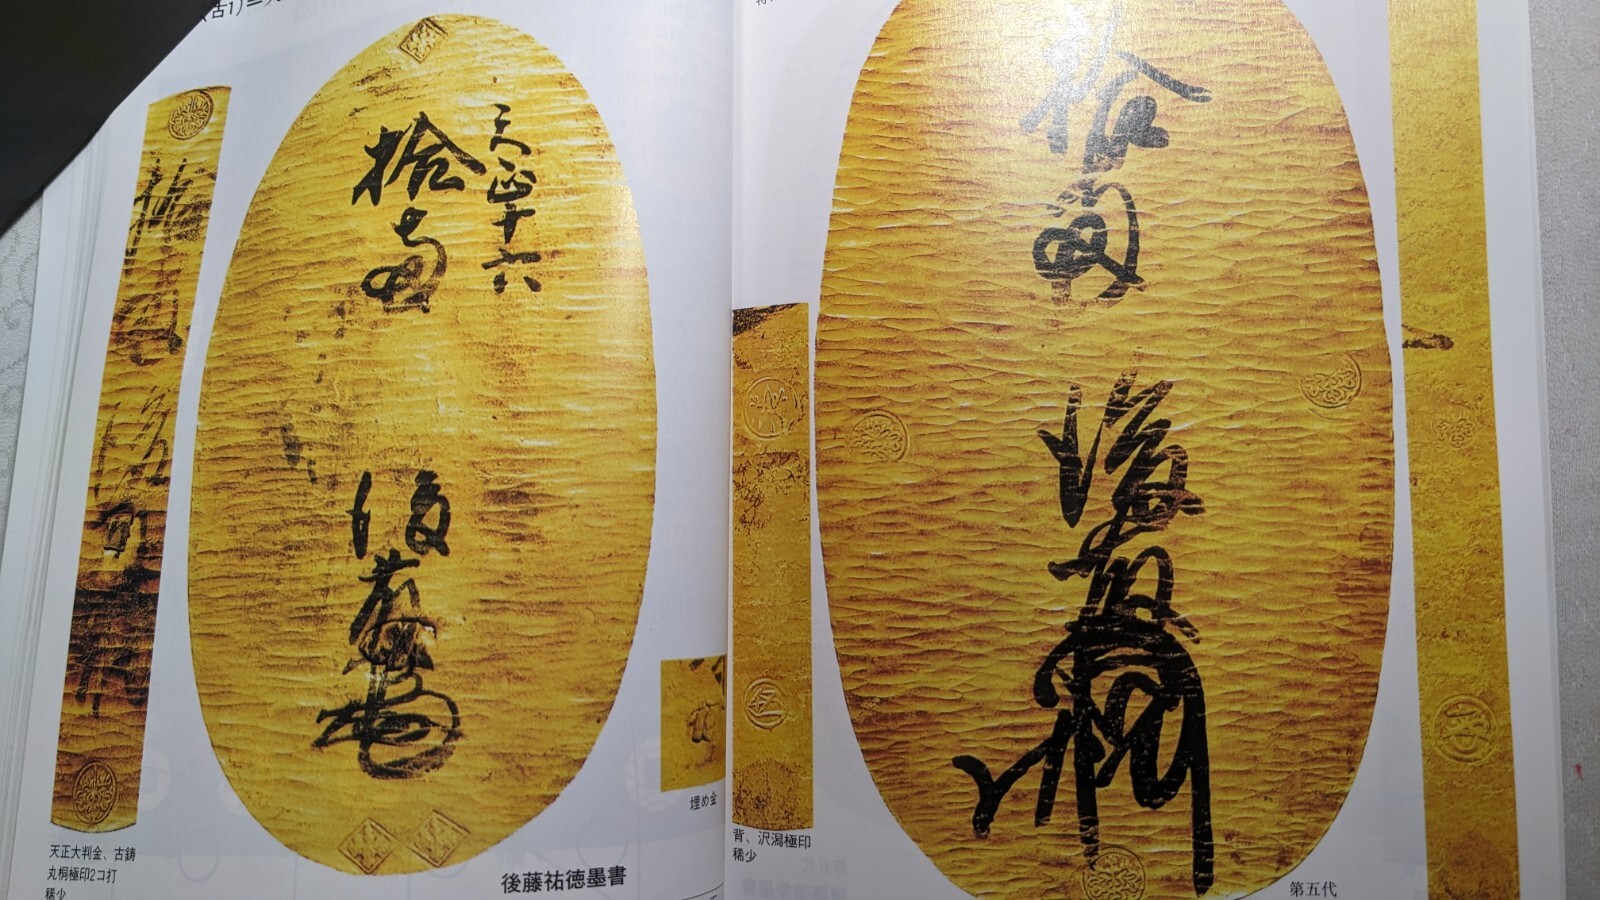 天正大判金、古鋳
丸桐極印2コ打
稀少
天正十六
拾両
後藤
後藤祐徳墨書
埋め金
背、沢潟極印
稀少
拾両
後藤
第五代